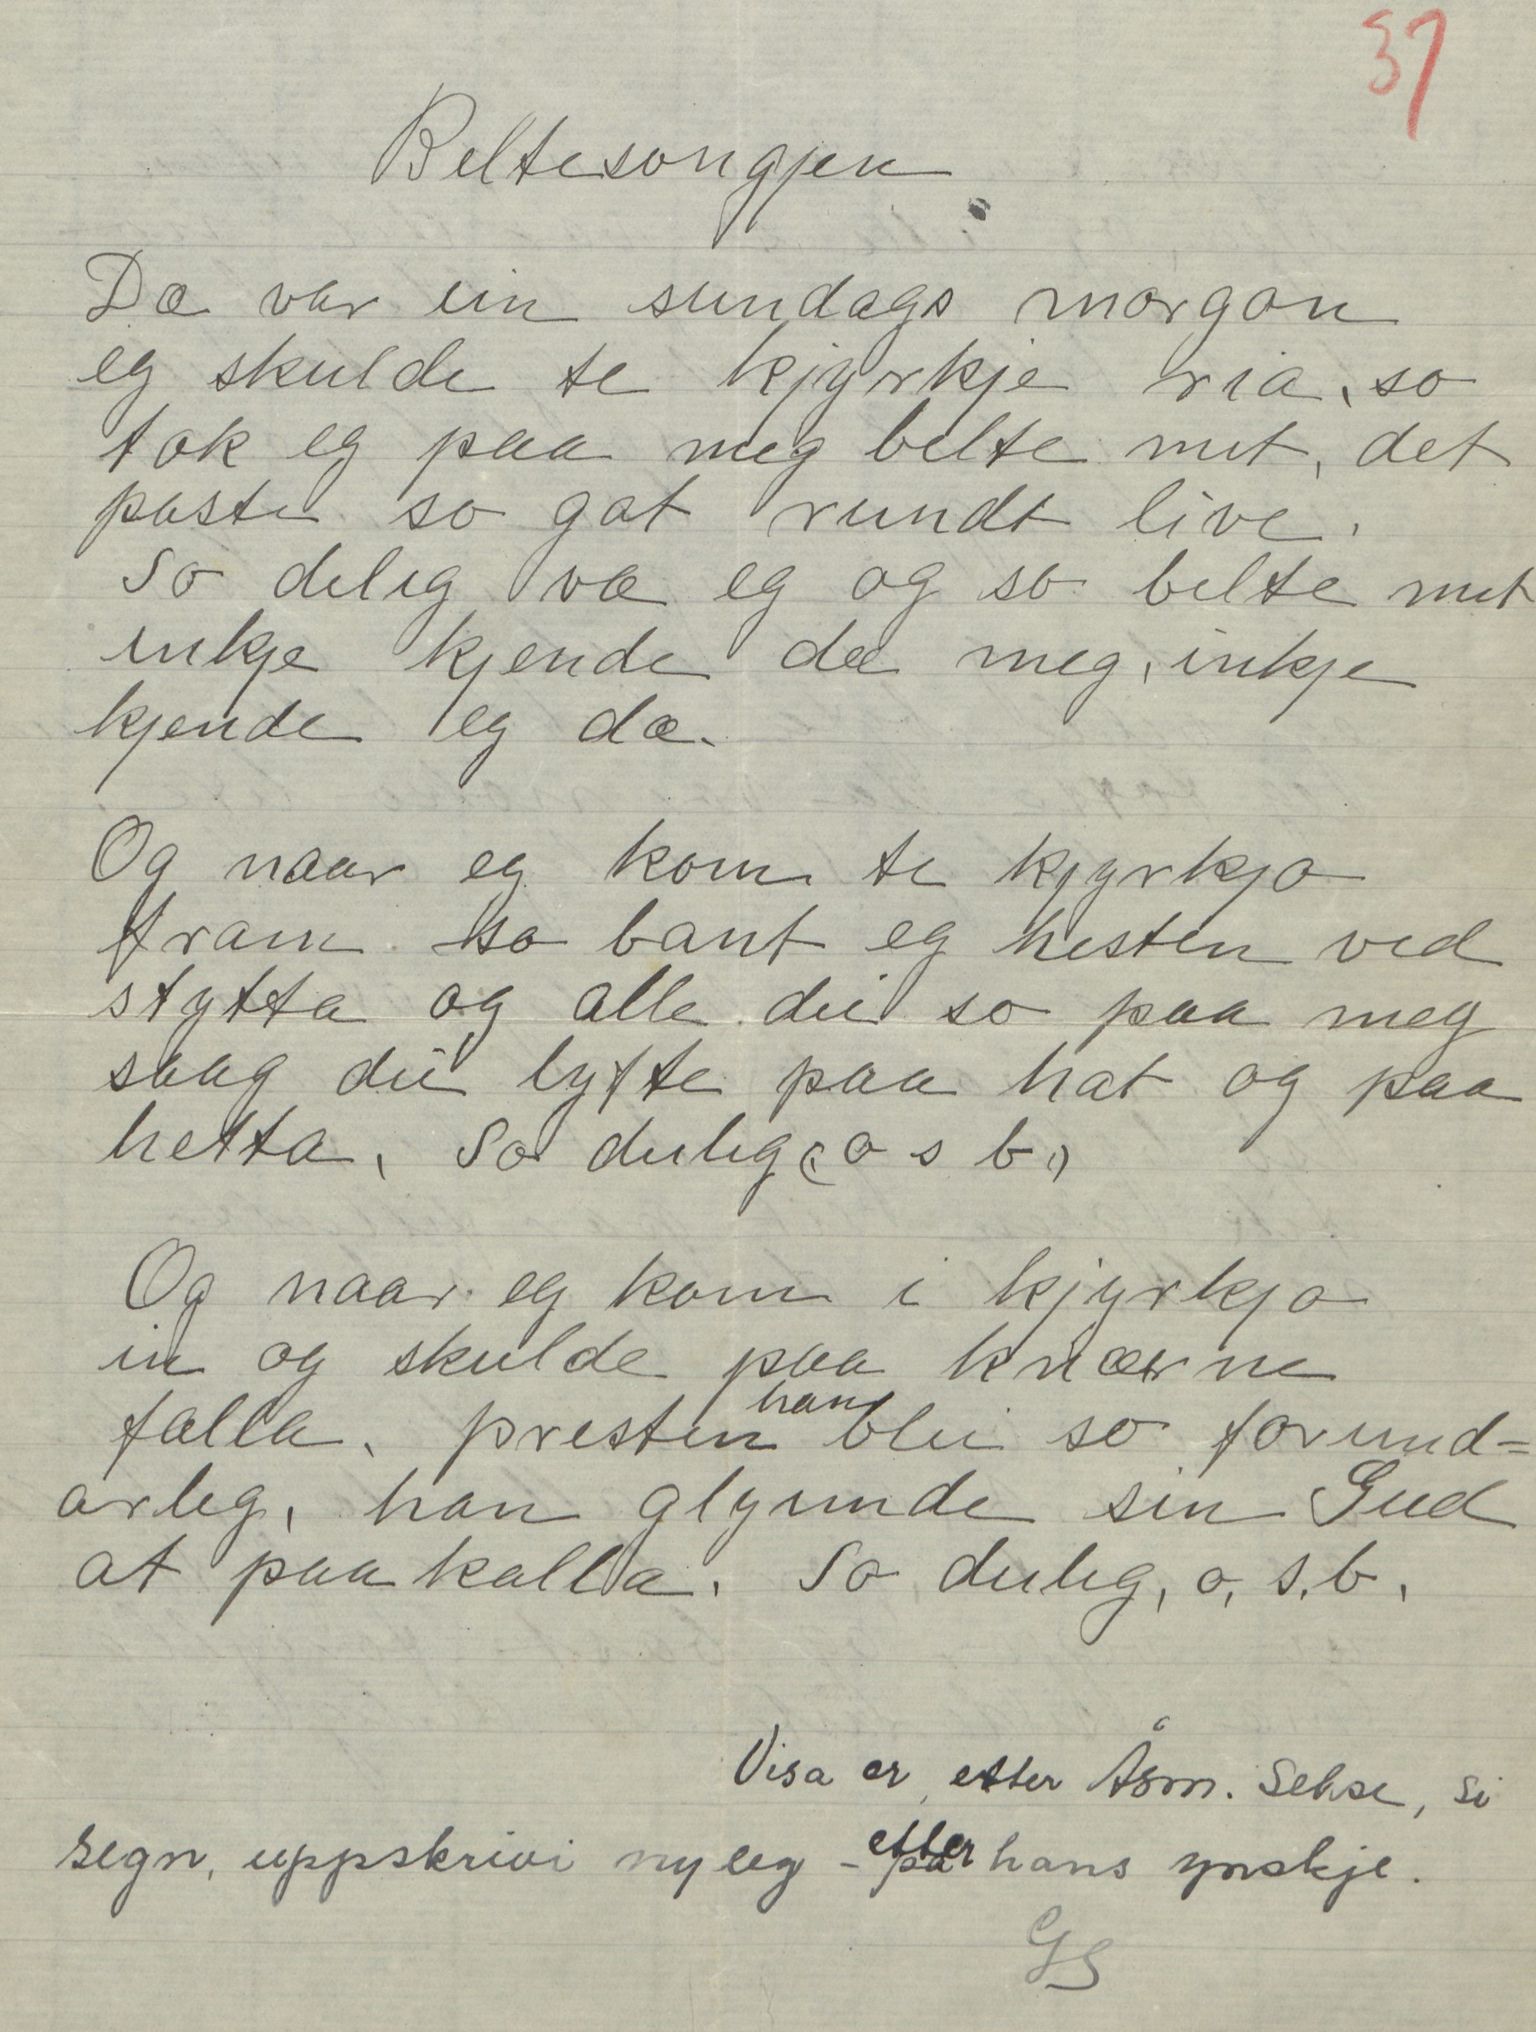 37
Beltesongjen
Dæ var ein sundags morgon
eg skulde te kjyrkje ria, so
tok eg paa meg belte mit, det
paste so gat rundt live.
So deleg væ eg og so belte mit
inkje kjende dæ meg, inkje
kjende eg dæ.
Og naar eg kom te kjyrkjo
fram so bant eg hesten ved
stytta og alle dei so paa meg
saag dei lyfte paa hat og paa
hetta, So deileg (o s b.)
Og naar eg kom i kjyrkjo
in og skulde paa knærne
falla, presten han blei so forund=
arleg, han glymde sin Gud
at paakalla. So deileg, o, s, b,
Visa er etter Åsm. Sekse, si
segn, uppskrivi nyleg – etter hans ynskje.
GS